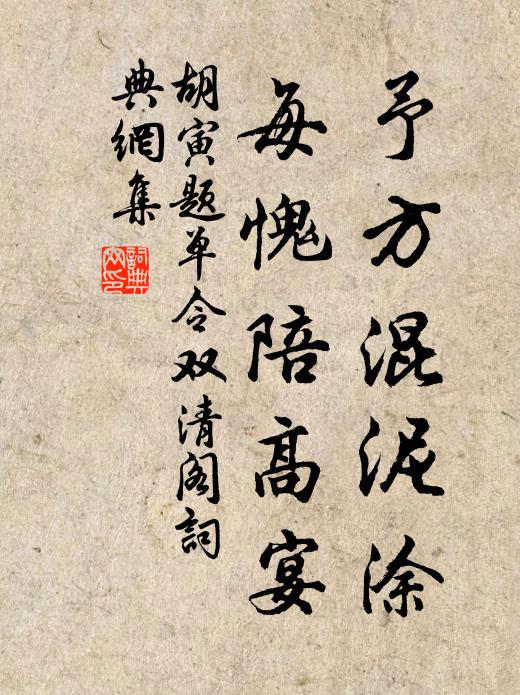 予方混泥涂
每愧陪高宴
胡寅题单令双清阁詞
典網集
詞典